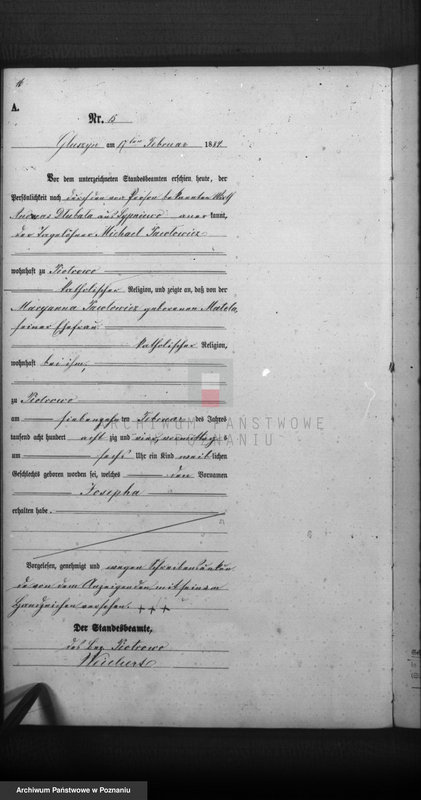 A.
Nr. 15
Gluszyn am 17ten Februar 1881.
Vor dem unterzeichneten Standesbeamten erschien heute, der
Persönlichkeit nach durch den von Person bekannten Wirth
Andreas Dlubala aus Sypniewo anerkannt,
der Tagelöhner Michael Pawlowicz
wohnhaft zu Piotrowo
katholischer Religion, und zeigte an, daß von der
Maryanna Pawlowicz geborenen Matela,
seiner Ehefrau
katholischer Religion,
wohnhaft bei ihm,
zu Piotrowo
am siebenzehnten Februar des Jahres
tausend acht hundert achtzig und vormittags
um sechs Uhr ein Kind weiblichen
Geschlechts geboren worden sei, welches den Vornamen
Josepha
erhalten habe.
Vorgelesen, genehmigt und wegen Schreibensunkun
de von dem Anzeigenden mit seinem
Handzeichen versehen. + + +
Der Standesbeamte,
des Bez. Piotrowo
ARCHIWUM PAŃSTWOWE
POZNANIU
Archiwum Państwowe w Poznaniu